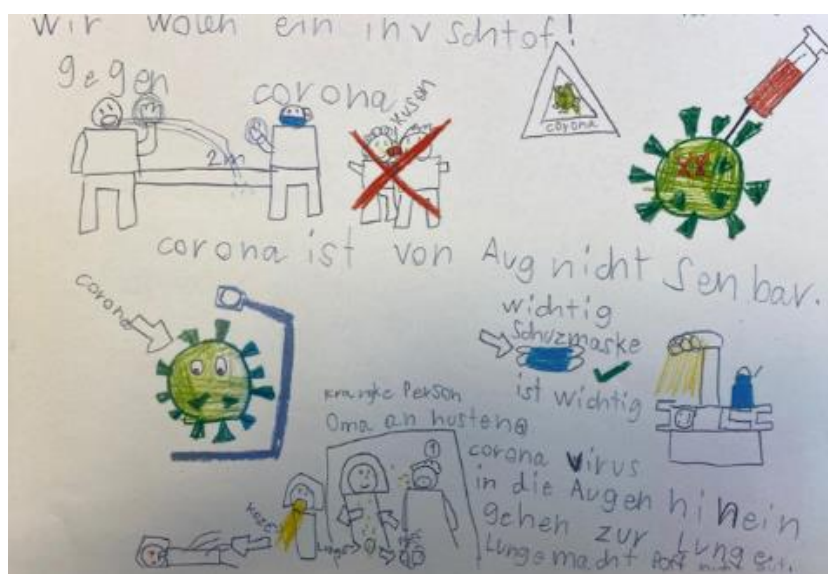 wir wolen ein inv schtof!
gegen
corona
2m
Kusen
corona
corona ist von Aug nicht Senbar.
corona
wichtig
Schuzmaske
ist wichtig
krangke Person
Oma an husten
corona virus
in die Augen hinein
gehen zur Lunge.
Lunge macht
Koze